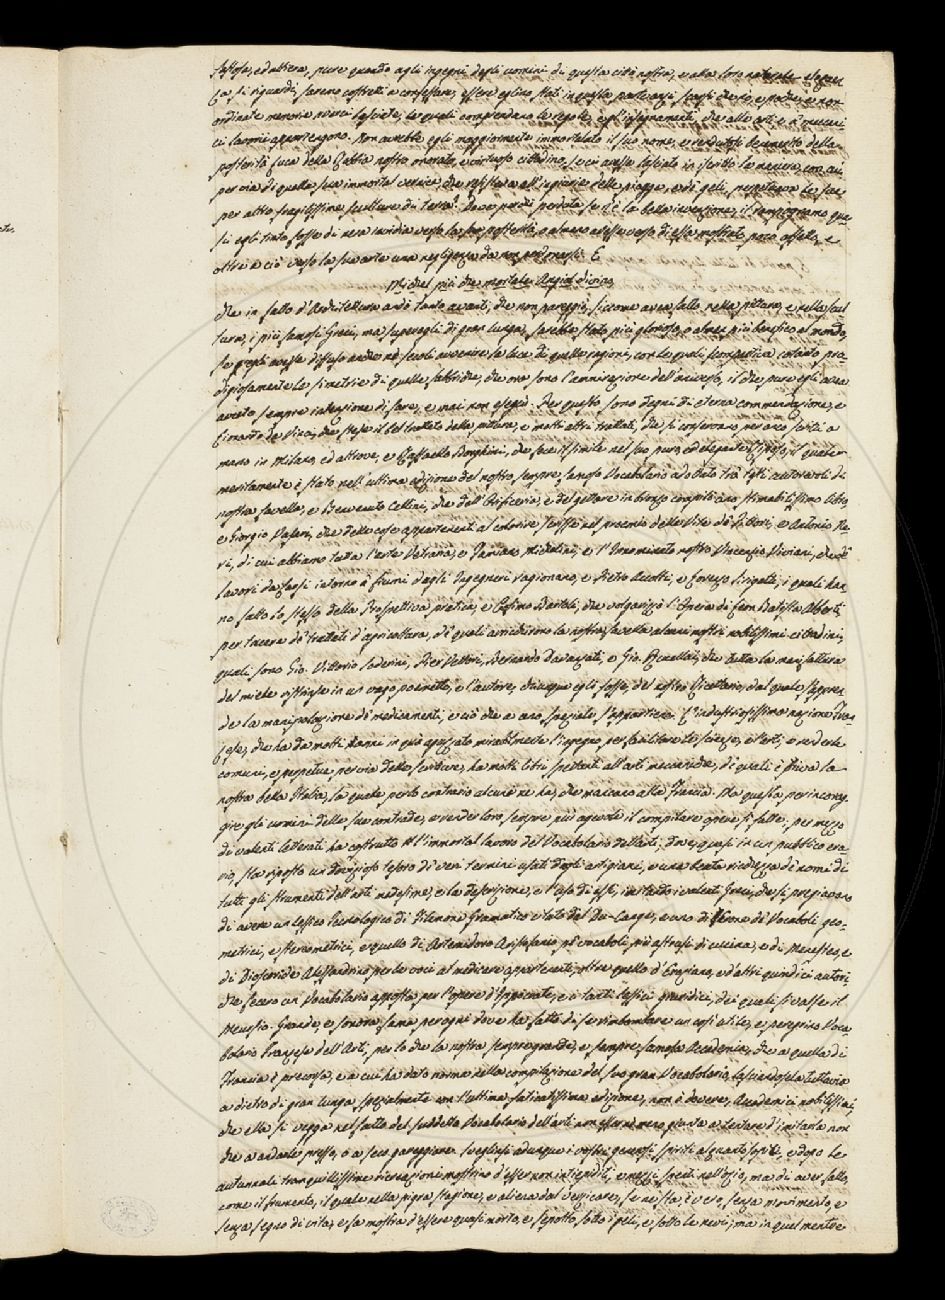 fastosa, ed altiera, pure quando agli ingegni degli uomini di questa città nostra, e alla loro naturale
si riguardi, saremo costretti a confessare, essere eglino stati in questa parte anzi scarsi che nò, e poche, e non
ordinate memorie averci lasciate, le quali comprendano le regole, e gl'insegnamenti, che alle arti, e a' meccani-
ci lavorii appartengono. Non avrebbe egli maggiormente immortalato il suo nome, e renduto
posterità Luca della Robbia nostro onorato, e virtuoso cittadino, se ci avesse lasciato in iscritto la maniera, con cui
per via di quella sua immortal vernice, che resisteva all'ingiurie delle piogge, e de' geli, perpetuava le sue
per altro fragilissime sculture di terra? Dove perchè perduta se n'è la bella invenzione,
si egli tinto fosse di nera invidia verso la sua posterità, o almeno avesse verso di essa mostrato poco affetto, e
oltre a ciò verso la sua arte una negligenza da non perdonarsi. E
Michel più che mortale Angiol divino,
che in fatto d'Architettura andò tanto avanti, che non pareggiò, siccome avea fatto nella pittura, e nella scul-
tura, i più famosi Greci, ma superogli di gran lunga, sarebbe stato più glorioso, o almen più benefico al mondo,
se egli avesse diffuso anche ne' secoli avvenire la luce di quelle ragioni, con le quali compartiva cotanto pro-
digiosamente le simetrie di quelle fabbriche, che ora sono l'ammirazione dell'universo, il che pure egli avea
avuto sempre intenzione di fare, e mai non eseguì. Per questo sono degni di eterna commendazione, e
Lionardo da Vinci, che stese il bel trattato della pittura, e molti altri trattati, che si conservano per anco scritti a
mano in Milano, ed altrove, e Raffaello Borghini, che fece il simile nel suo puro, ed elegante Riposo, il quale
meritamente è stato nell'ultima edizione del nostro sempre famoso Vocabolario adottato tra' testi autorevoli di
nostra favella, e Benvenuto Cellini, che dell'Orificeria, e del gettare in bronzo compilò uno stimabilissimo libro,
e Giorgio Vasari, che delle cose appartenenti al colorire scrisse nel proemio delle Vite de' Pittori, e Antonio Ne-
ri, di cui abbiamo tutta l'arte Vetraria, e Famiano Michelini, e l'Innominato nostro Vincenzio Viviani, che de'
lavori da farsi intorno a' fiumi dagli Ingegneri ragionano, e Pietro Accolti, e Lorenzo Sirigatti, i quali han-
no fatto lo stesso della Prospettiva pratica, e Cosimo Bartoli, che volgarizzò l'Opera di Leon Batista Alberti,
per tacere de' trattati d'agricoltura, de' quali arricchirono la nostra favella alcuni nostri nobilissimi cittadini,
quali sono Gio. Vittorio Soderini, Pier Vettori, Bernardo Davanzati, e Gio. Rucellai, che tutta la manifattura
del miele ristrinse in un vago poemetto, e l'autore, chiunque egli fosse, del nostro Ricettario, dal quale s'appren-
de la manipolazione de' medicamenti, e ciò che a uno speziale s'appartiene. L'industriosissima nazione Fran-
cese, che ha da molti danni in quà aguzzato mirabilmente l'ingegno per facilitare le scienze, e l'arti, e renderle
comuni, e perpetue per via delle scritture, ha molti libri spettanti all'arti meccaniche, de' quali è priva la
nostra bella Italia, la quale per lo contrario alcuni ne ha, che mancano alla Francia. Ma questa, per incorag-
gire gli uomini delle sue contrade, e render loro sempre più agevole il compilare opere sì fatte, per mezzo
di valenti letterati ha costrutto all'immortal lavoro del Vocabolario dell'arti, dove, quasi in un pubblico era-
rio, sta riposto un dovizioso tesoro di veri termini usati dagli artigiani, e una beata ricchezza de' nomi di
tutti gli strumenti dell'arti medesime, e la descrizione, e l'uso di essi, imitando i valenti Greci, che si pregiavano
di avere un lessico Tecnologico di Filemone Gramatico citato dal Du-Cange, e uno di Erone de' Vocaboli geo-
metrici, e stereometrici, e quello di Artemidoro Aristofanio pe' vocaboli più astrusi di cucina, e di Menesteo, e
di Dioscoride Alessandrino per le voci al medicare appartenenti, oltre quello d'Eroziano, e d'altri quindici autori,
che fecero un Vocabolario apposta per l'opere d'Ippocrate, e i tanti lessici giuridici, dei quali si valse il
Meursio. Grande, e sonora fama per ogni dove ha fatto di se rimbombare un così utile, e peregrino Voca-
bolario Franzese dell'Arti, per lo che la nostra sempre grande, e sempre famosa Accademia, che a quella di
Francia è precorsa, e a cui ha dato norma nella compilazione del suo gran Vocabolario, lasciandosela tuttavia
a dietro di gran lunga, spezialmente con l'ultima faticatissima edizione, non è dovere, Accademici nobilissimi,
che ella si vegga nel fatto del suddetto Vocabolario dell'arti non esserne meno giunta a tentare d'imitarla non
che a andarle presso, o a seco gareggiare. Svegliasi adunque i vostri generosi spiriti alquanto sopiti, e dopo le
autunnali tranquillissime ricreazioni mostrino d'esser non intiepiditi, e mezzi spenti nell'ozio, ma di aver fatto,
come il frumento, il quale nella pigra stagione, e aliena dal vegetare, se ne sta è vero, senza movimento, e
senza segno di vita, e fa mostra d'essere quasi morto, e sepolto sotto i geli, e sotto le nevi; ma in quel mentre